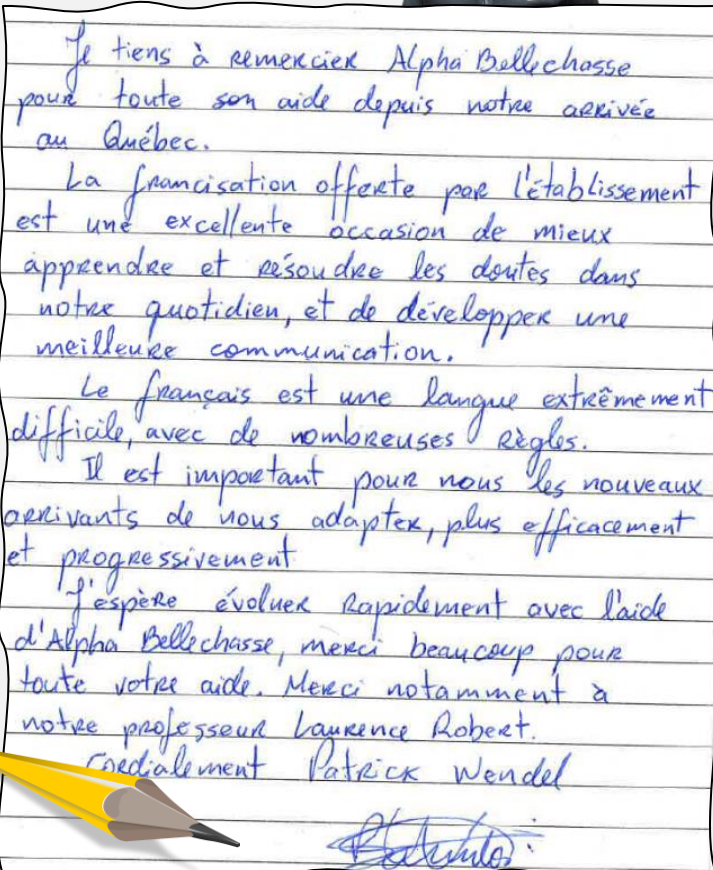 Je tiens à remercier Alpha Bellechasse
pour toute son aide depuis notre arrivée
au Québec.
La francisation offerte par l'établissement
est une excellente occasion de mieux
apprendre et résoudre les doutes dans
notre quotidien, et de développer une
meilleure communication.
Le français est une langue extrêmement
difficile, avec de nombreuses règles.
Il est important pour nous les nouveaux
arrivants de nous adapter, plus efficacement
et progressivement
J'espère évoluer rapidement avec l'aide
d'Alpha Bellechasse, merci beaucoup pour
toute votre aide. Merci notamment à
notre professeur Laurence Robert.
Cordialement Patrick Wendel